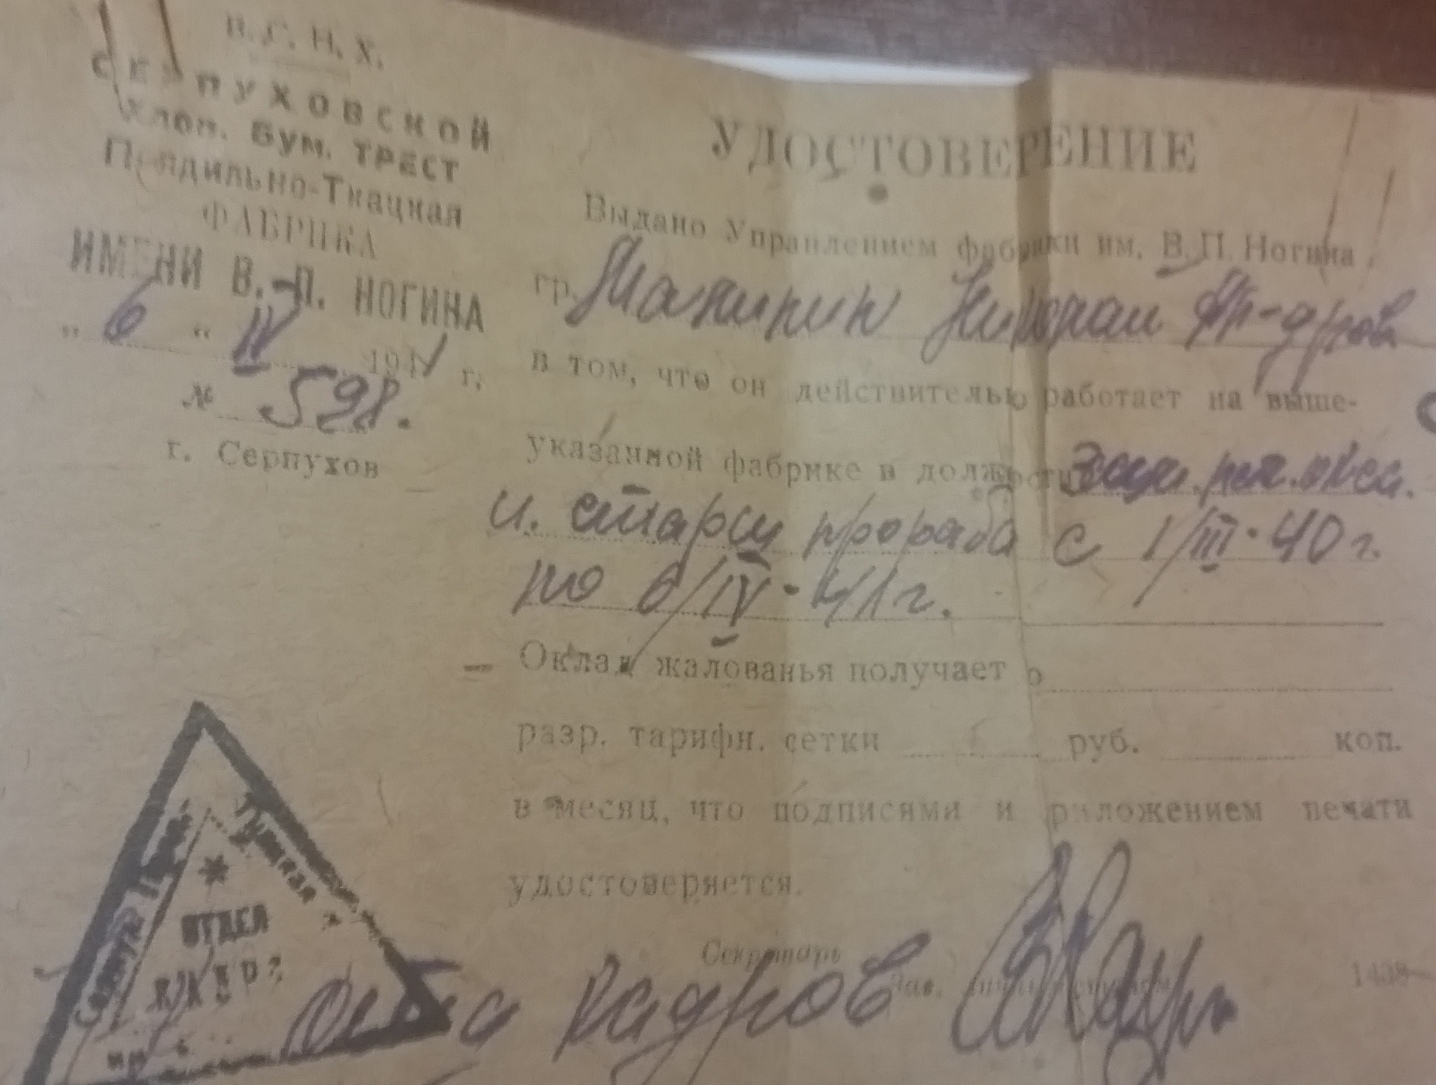 В. С. Н. Х.
СЕРПУХОВСКОЙ
Хлоп. Бум. ТРЕСТ
Прядильно-Ткацкая
ФАБРИКА
ИМЕНИ В.-П. НОГИНА
„ 6 “ IV 1941 г.
№ 598.
г. Серпухов
УДОСТОВЕРЕНИЕ
Выдано Управлением фабрики им. В. П. Ногина
гр. Николай
в том, что он действительно работает на выше-
указанной фабрике в должности
и. старш прораба с 1/III·40 г.
по 6/IV·41 г.
— Оклад жалованья получает по
разр. тарифн. сетки руб. коп.
в месяц, что подписями и приложением печати
удостоверяется.
Секретарь
Зав.
отдела кадров
ОТДЕЛ
КАДРОВ
им.